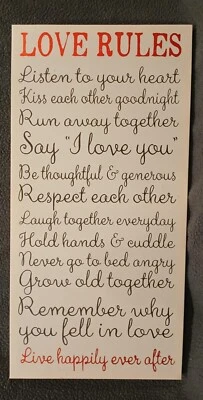 LOVE RULES
Listen to your heart
Kiss each other goodnight
Run away together
Say "I love you"
Be thoughtful & generous
Respect each other
Laugh together everyday
Hold hands & cuddle
Never go to bed angry
Grow old together
Remember why
you fell in love
Live happily ever after